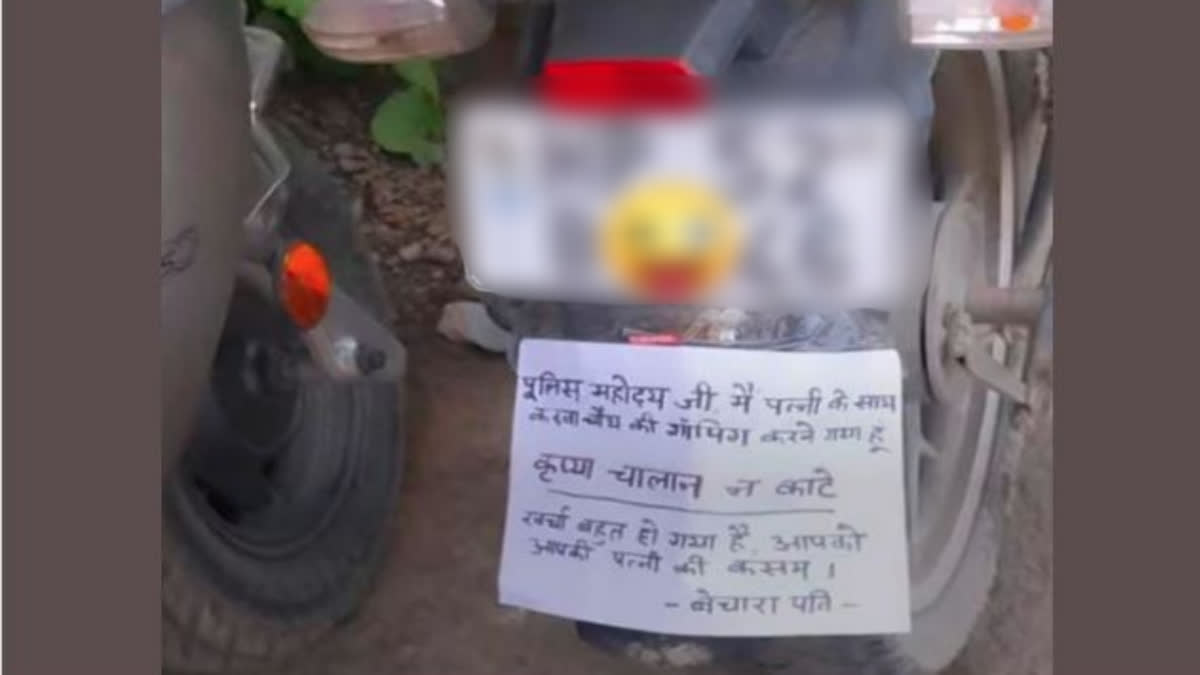 पुलिस महोदय जी, मैं पत्नी के साथ
करवाचौथ की शॉपिंग करने गया हूं
कृप्या चालान न काटे
खर्चा बहुत हो गया है, आपको
आपकी पत्नी की कसम ।
- बेचारा पति -